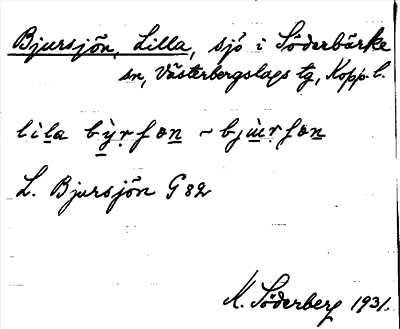 Bjursjön, Lilla, sjö i Söderbärke
sn, Västerbergslags tg, Kopp. l.
lila
L. Bjursjön G 82
K. Söderberg 1931.